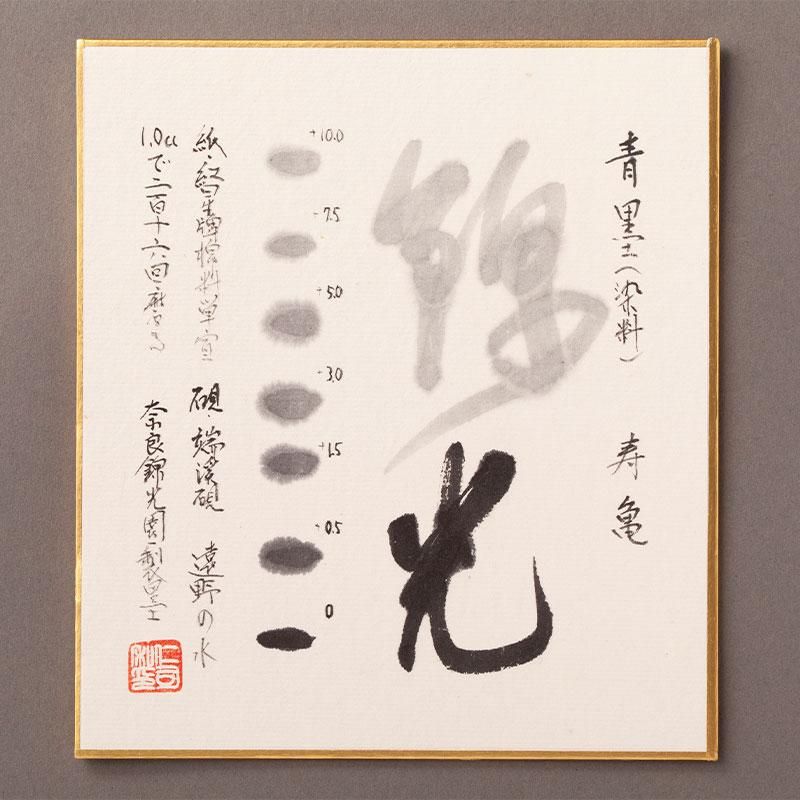 青墨（染料）　寿亀
錦光
+10.0
+7.5
+5.0
+3.0
+1.5
+0.5
0
紙・紅星牌棉料単宣　硯・端渓硯　遠野の水
1.0ccで二百十六回磨る　奈良錦光園製墨